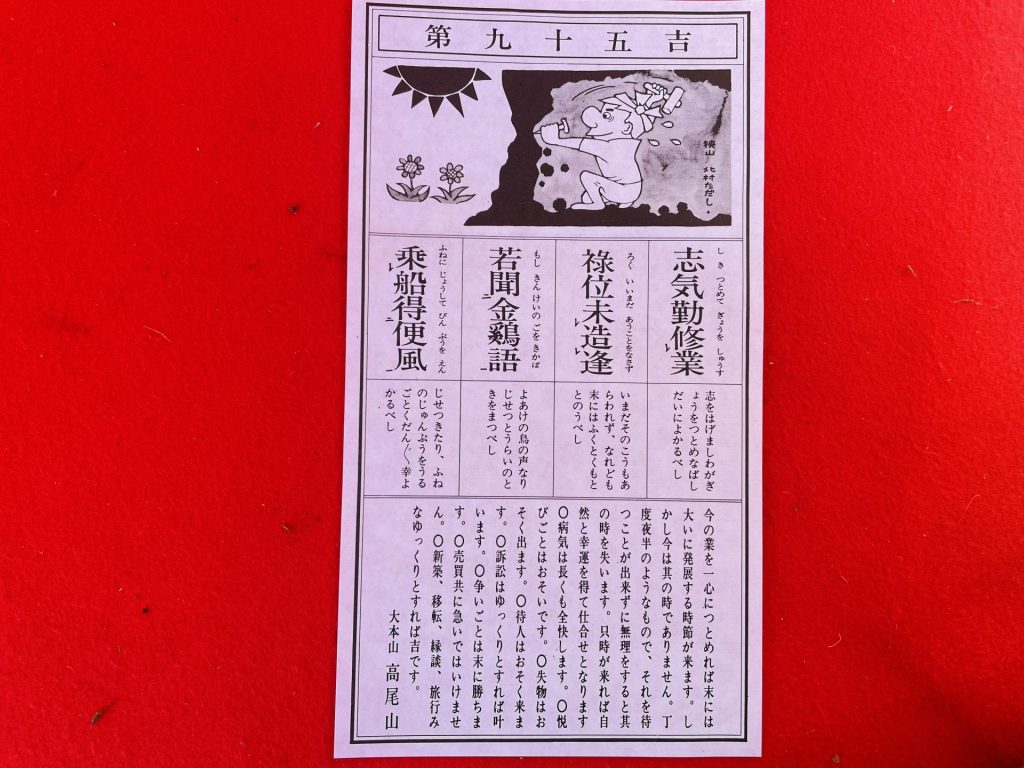 第九十五吉
狭山 北村ただし.
し き つとめて ぎょうを しゅうす
志気勤修業
ろく いいまだ あうことをなさず
祿位未造逢
もし きんけいの ごを きかば
若聞金鷄語
ふねに じょうして びん ぷうを えん
乗船得便風
志をはげましわがぎ
ょうをつとめなばし
だいによかるべし
いまだそのこうもあ
らわれず、なれども
末にはふくとくもと
とのうべし
よあけの鳥の声なり
じせつとうらいのと
きをまつべし
じせつきたり、ふね
のじゅんぷうをうる
ごとくだん〳〵幸よ
かるべし
今の業を一心につとめれば末には
大いに発展する時節が来ます。し
かし今は其の時でありません。丁
度夜半のようなもので、それを待
つことが出来ずに無理をすると其
の時を失います。只時が来れば自
然と幸運を得て仕合せとなります
〇病気は長くも全快します。〇悦
びごとはおそいです。〇失物はお
そく出ます。〇待人はおそく来ま
す。〇訴訟はゆっくりとすれば叶
います。〇争いごとは末に勝ちま
す。〇売買共に急いではいけませ
ん。〇新築、移転、縁談、旅行み
なゆっくりとすれば吉です。
大本山 高尾山